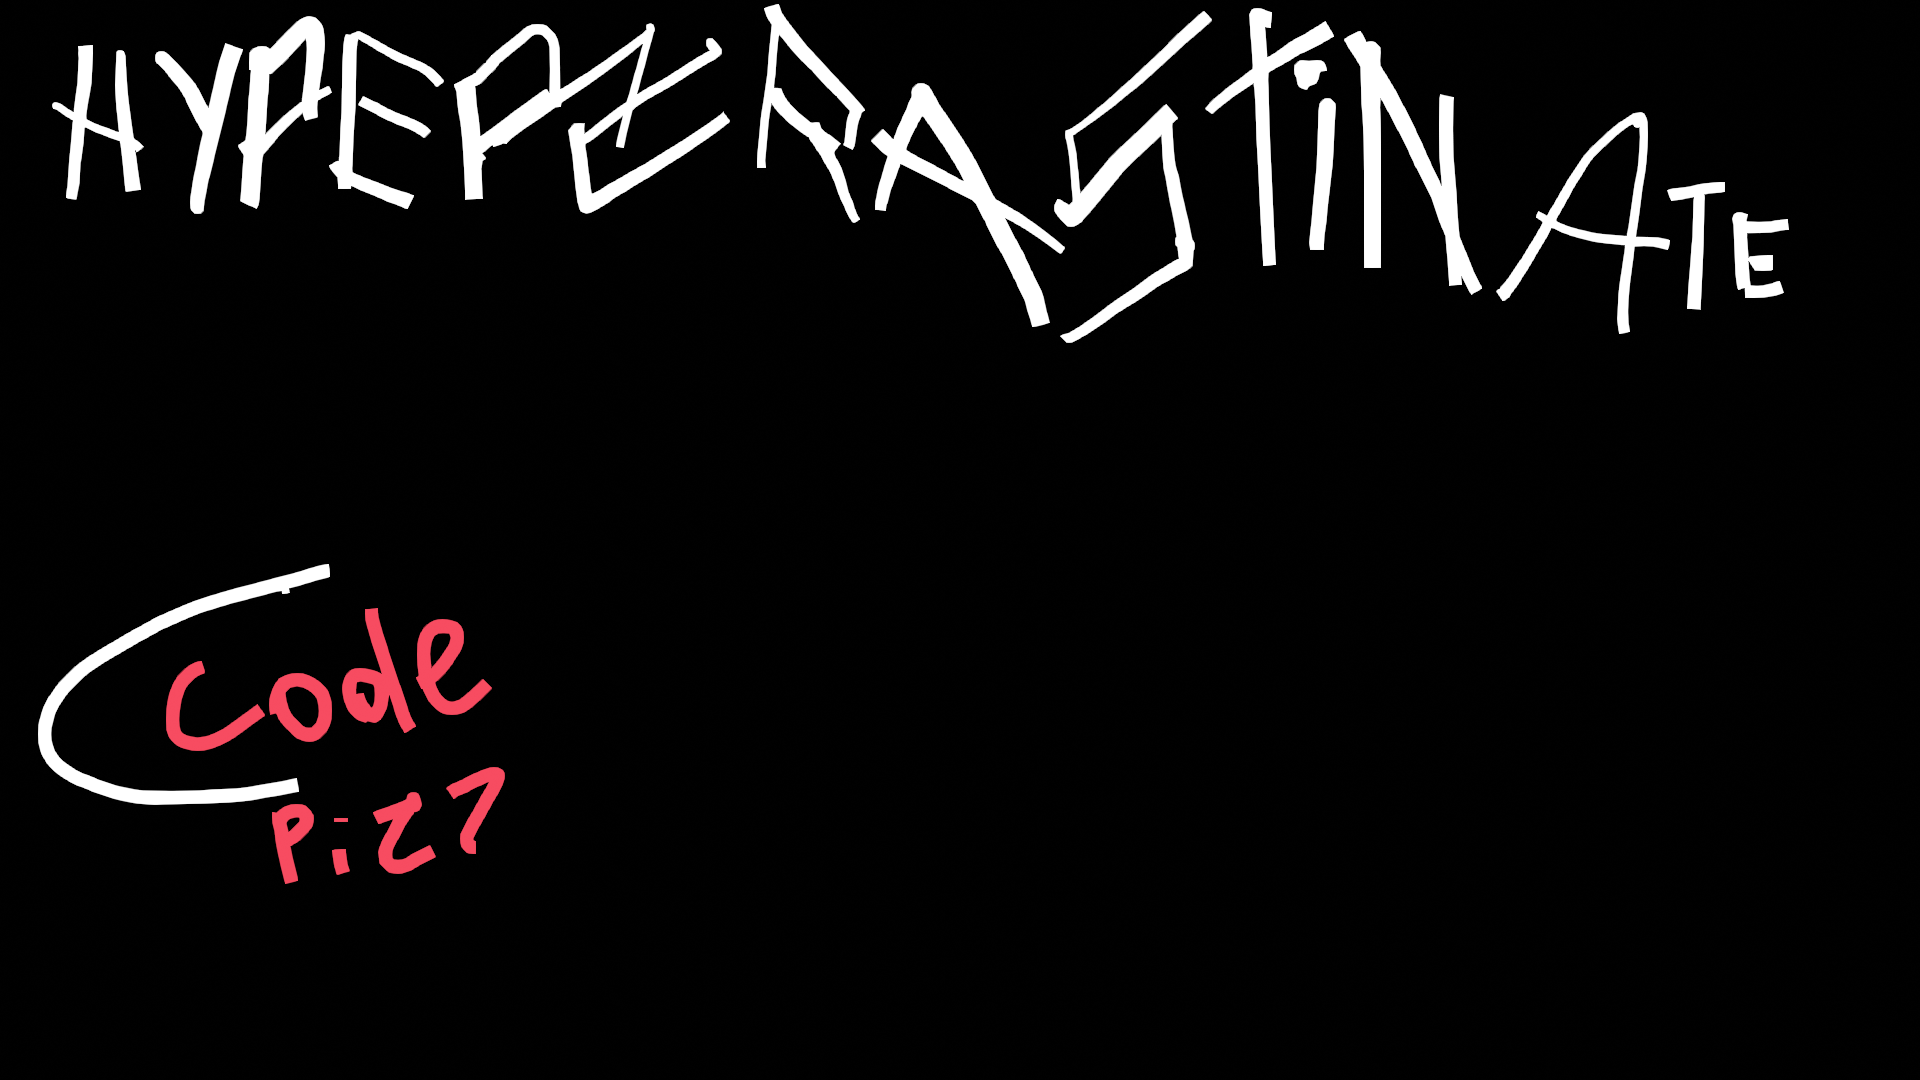 HYPEPERASTiNATE
Code
Piz?